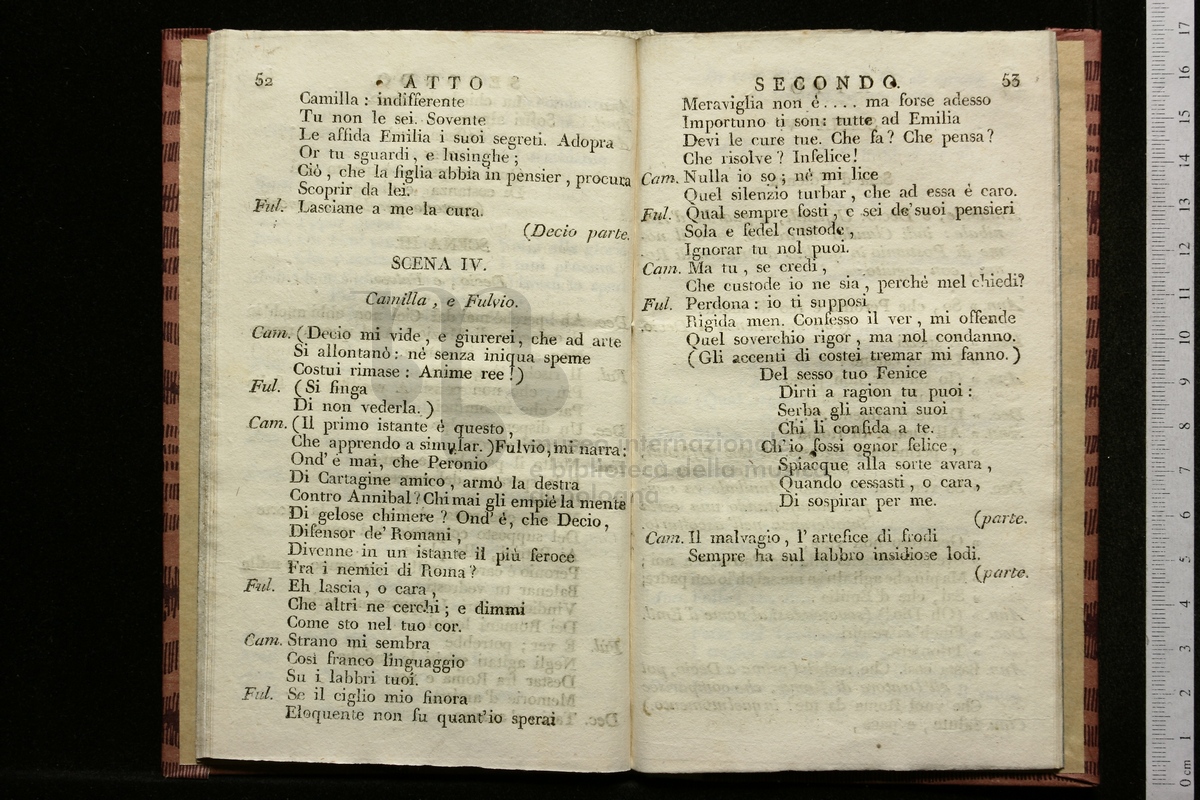 52 ATTO
Camilla : indifferente
Tu non le sei. Sovente
Le affida Emilia i suoi segreti. Adopra
Or tu sguardi, e lusinghe ;
Ciò, che la figlia abbia in pensier, procura
Scoprir da lei.
Ful. Lasciane a me la cura.
(Decio parte.
SCENA IV.
Camilla, e Fulvio.
Cam. (Decio mi vide, e giurerei, che ad arte
Si allontanò : nè senza iniqua speme
Costui rimase : Anime ree !)
Ful. (Si finga
Di non vederla.)
Cam. (Il primo istante è questo,
Che apprendo a simular.) Fulvio, mi narra :
Ond' è mai, che Peronio
Di Cartagine amico, armò la destra
Contro Annibal ? Chi mai gli empiè la mente
Di gelose chimere ? Ond' è, che Decio,
Difensor de' Romani,
Divenne in un istante il più feroce
Fra i nemici di Roma ?
Ful. Eh lascia, o cara,
Che altri ne cerchi ; e dimmi
Come sto nel tuo cor.
Cam. Strano mi sembra
Così franco linguaggio
Su i labbri tuoi.
Ful. Se il ciglio mio finora
Eloquente non fu quant' io sperai
SECONDO. 53
Meraviglia non è .... ma forse adesso
Importuno ti son : tutte ad Emilia
Devi le cure tue. Che fa ? Che pensa ?
Che risolve ? Infelice !
Cam. Nulla io so ; nè mi lice
Quel silenzio turbar, che ad essa è caro.
Ful. Qual sempre fosti, e sei de' suoi pensieri
Sola e fedel custode,
Ignorar tu nol puoi.
Cam. Ma tu, se credi,
Che custode io ne sia, perchè mel chiedi ?
Ful. Perdona : io ti supposi
Rigida men. Confesso il ver, mi offende
Quel soverchio rigor, ma nol condanno.
(Gli accenti di costei tremar mi fanno.)
Del sesso tuo Fenice
Dirti a ragion tu puoi :
Serba gli arcani suoi
Chi li confida a te.
Ch' io fossi ognor felice,
Spiacque alla sorte avara,
Quando cessasti, o cara,
Di sospirar per me.
(parte.
Cam. Il malvagio, l' artefice di frodi
Sempre ha sul labbro insidiose lodi.
(parte.
museo internazionale
e biblioteca della musica
di bologna
0 cm 1 2 3 4 5 6 7 8 9 10 11 12 13 14 15 16 17